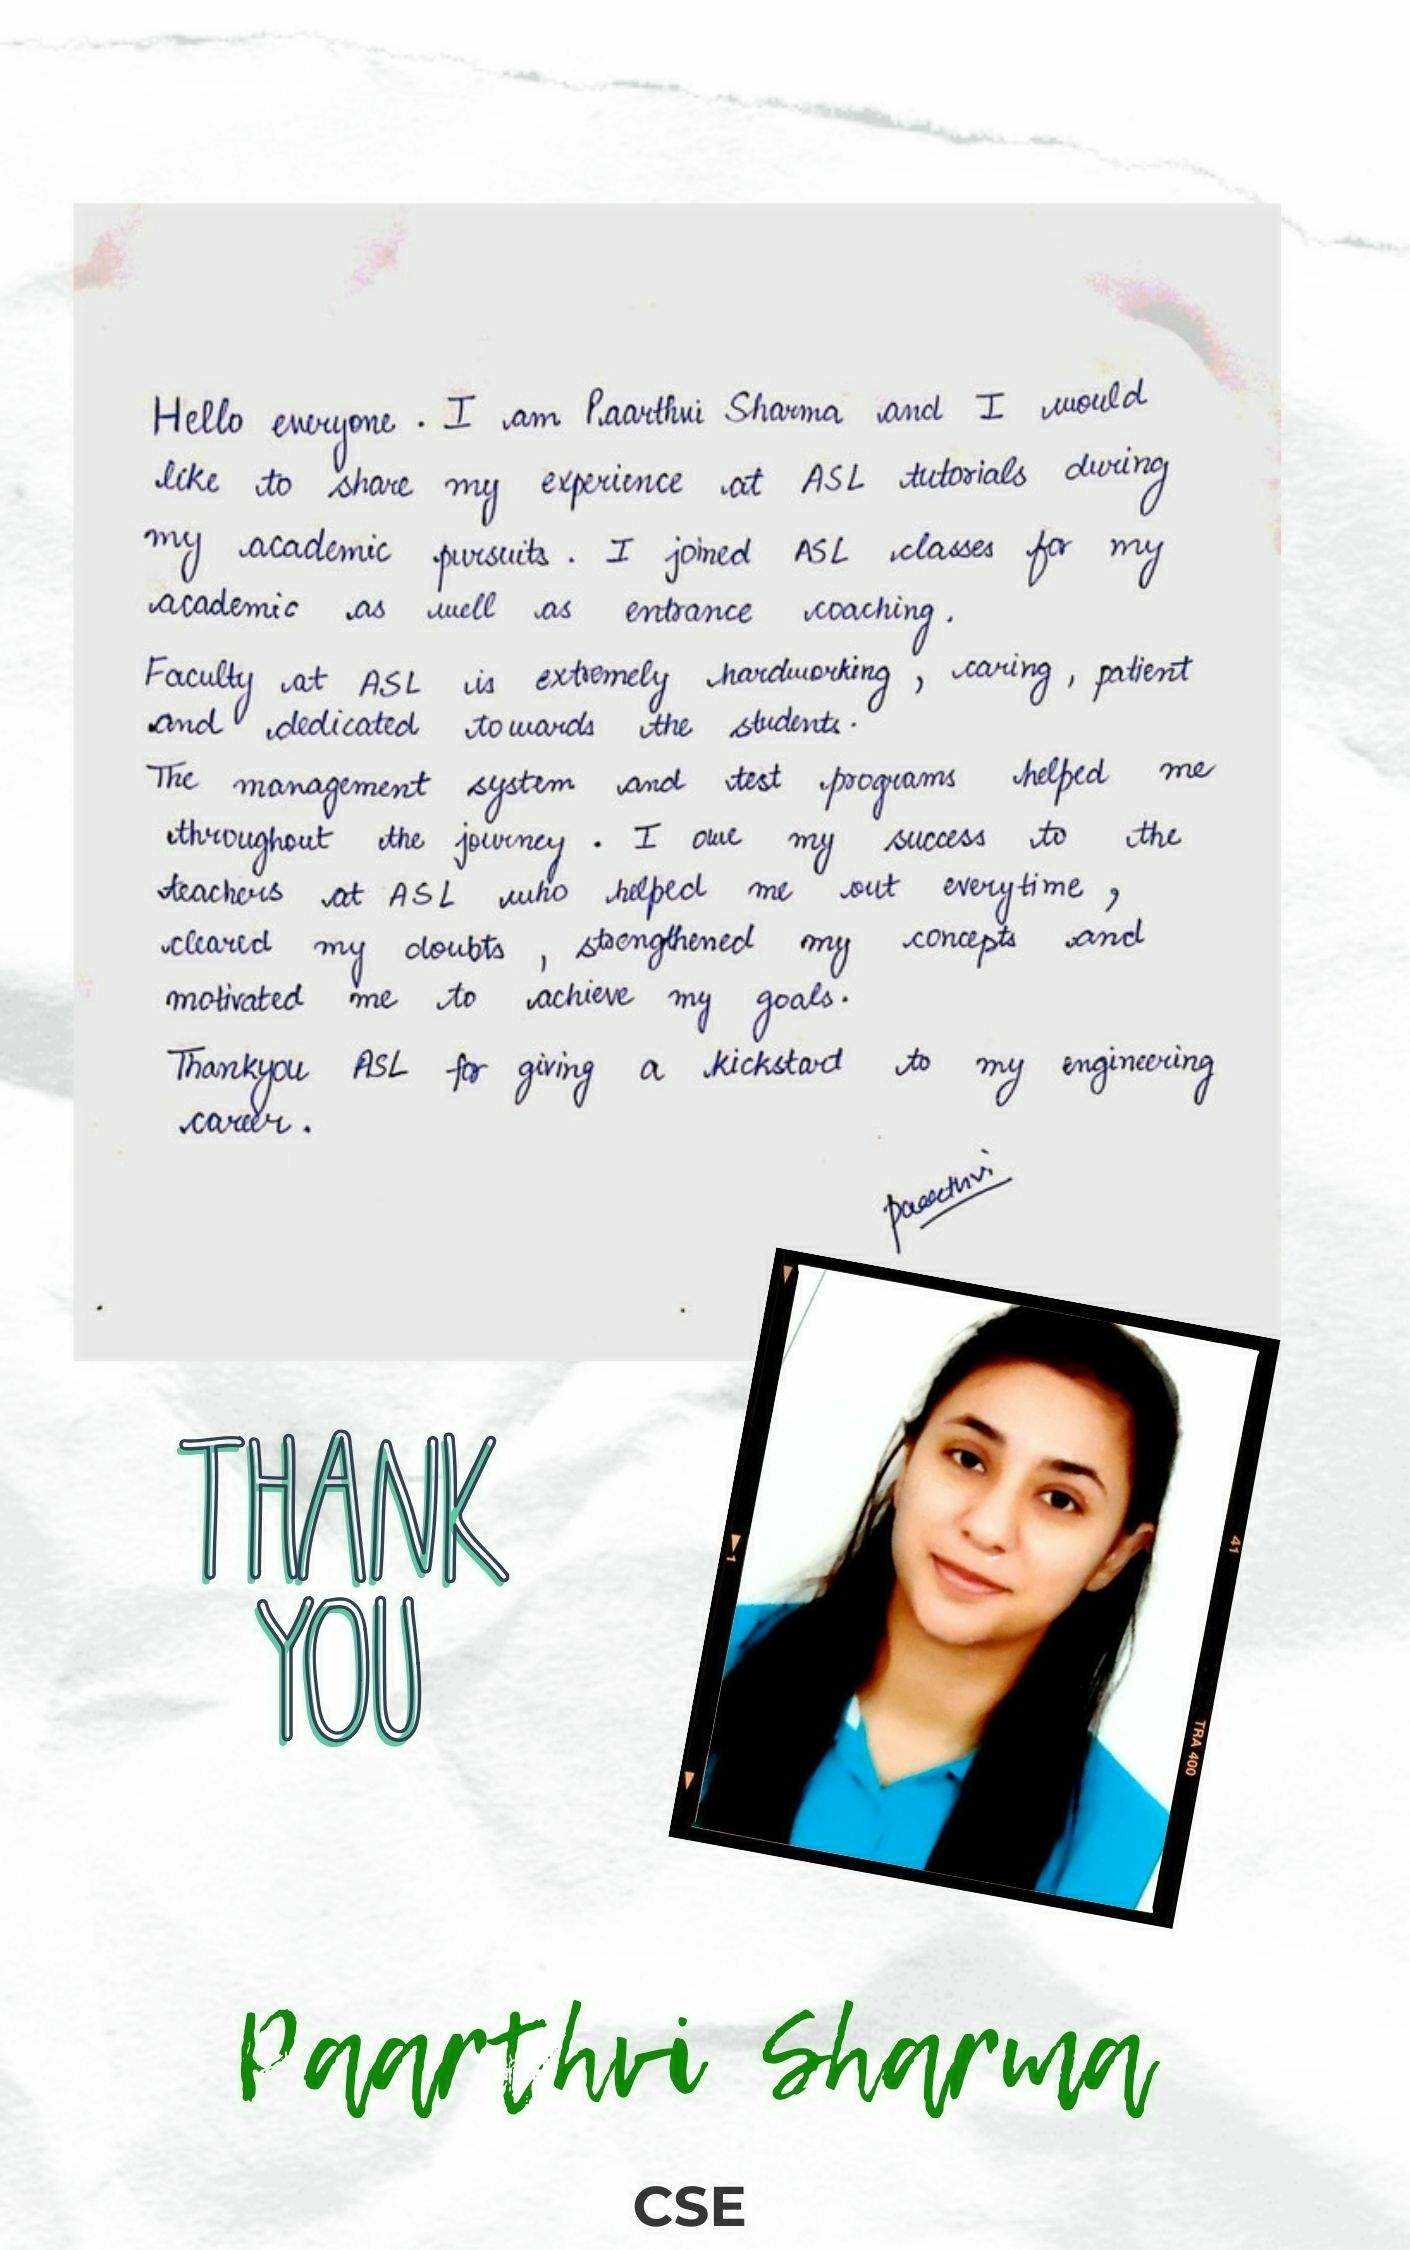 Hello everyone. I am Paarthvi Sharma and I would
like to share my experience at ASL tutorials during
my academic pursuits. I joined ASL classes for my
academic as well as entrance coaching.
Faculty at ASL is extremely hardworking, caring, patient
and dedicated towards the students.
The management system and test programs helped me
throughout the journey. I owe my success to the
teachers at ASL who helped me out everytime,
cleared my doubts, strengthened my concepts and
motivated me to achieve my goals.
Thankyou ASL for giving a kickstard to my engineering
career.
Paarthvi
THANK
YOU
1
41
TRA 400
Paarthvi Sharma
CSE